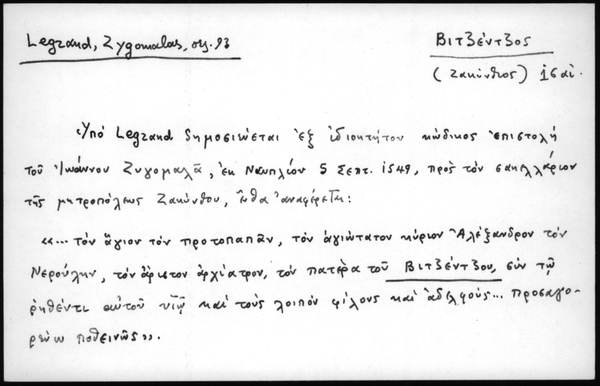 Legrand, Zygomalas, σελ. 93
Βιτζέντζος
(Ζακύνθιος) 16 αἰ.
Ὑπὸ Legrand δημοσιεύεται ἐξ ἰδιοκτήτου κώδικος ἐπιστολὴ
τοῦ Ἰωάννου Ζυγομαλᾶ, ἐκ Ναυπλίου 5 Σεπτ. 1549, πρὸς τὸν σακελλάριον
τῆς μητροπόλεως Ζακύνθου, ἔνθα ἀναφέρεται:
«... τὸν ἅγιον τὸν πρωτοπαπᾶν, τὸν ἁγιώτατον κύριον Ἀλέξανδρον τὸν
Νερούλην, τὸν ἄριστον ἀρχίατρον, τὸν πατέρα τοῦ Βιτζέντζου, σὺν τῷ
ῥηθέντι αὐτοῦ υἱῷ καὶ τοὺς λοιποὺς φίλους καὶ ἀδελφούς... προσαγο-
ρεύω ποθεινῶς».